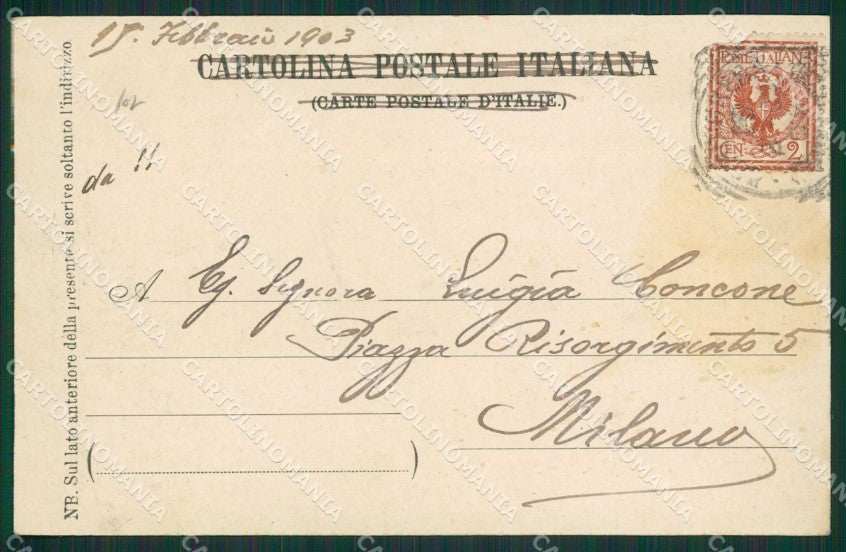 17. Febbraio 1903
CARTOLINA POSTALE ITALIANA
(CARTE POSTALE D'ITALIE.)
POSTE ITALIANE
CEN: 2
NB. Sul lato anteriore della presente si scrive soltanto l'indirizzo
da !!
A Eg. Signora Luigia Concone
Piazza Risorgimento 5
Milano
CARTOLINOMANIA